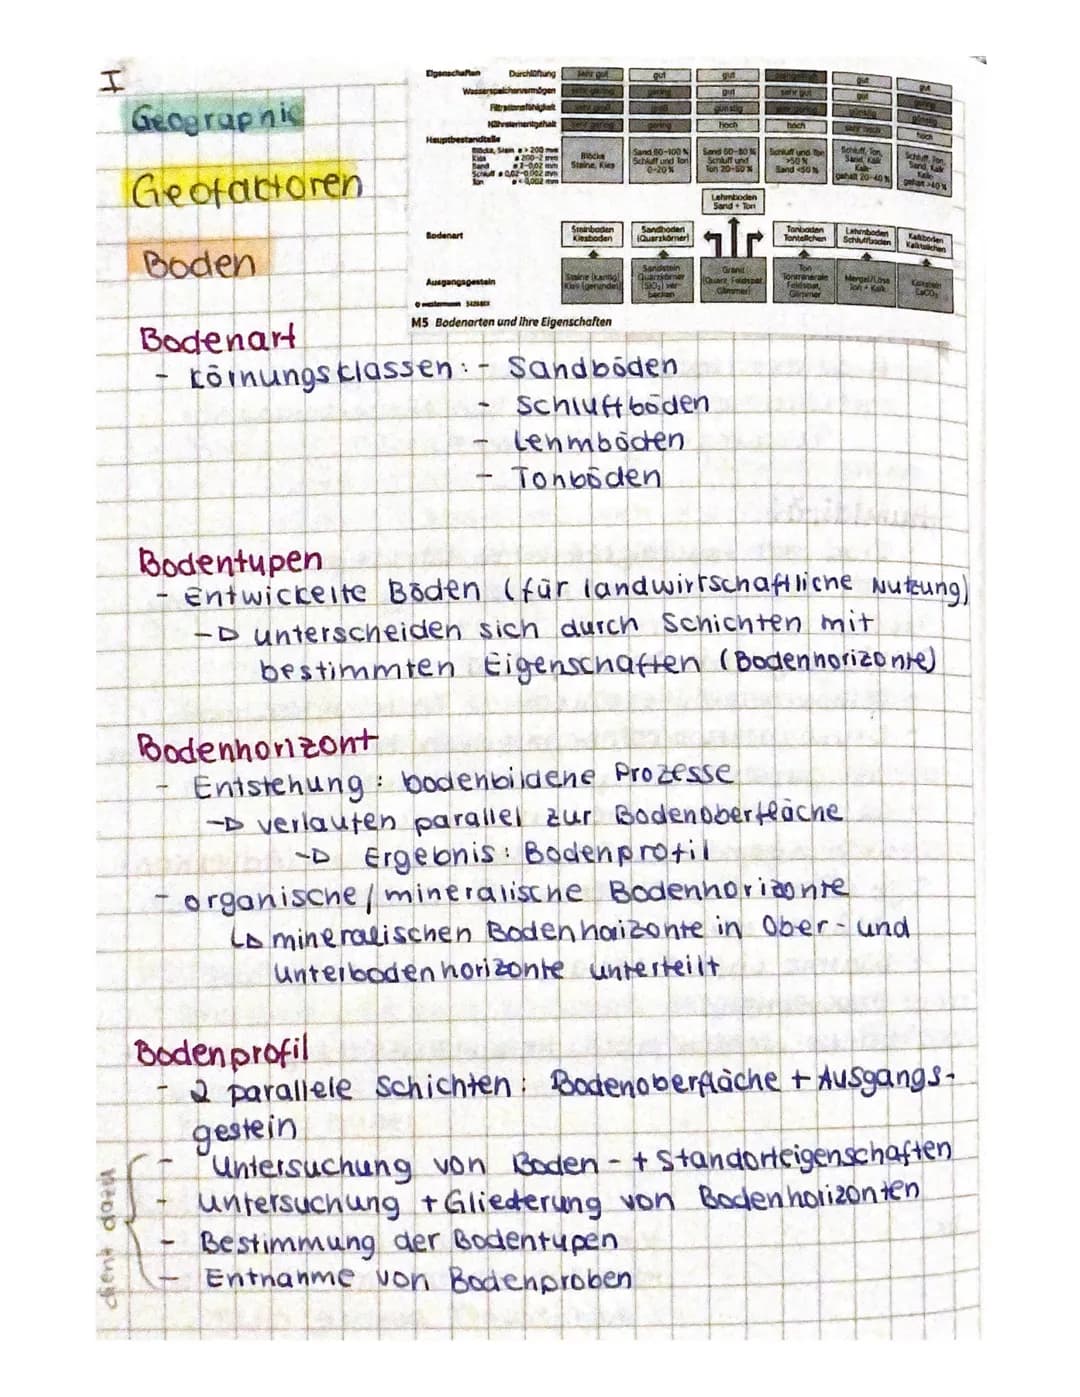 I
Geographie
Geofaktoren
Boden
Eigenschaften Durchlüftung sehr gut gut gut gut gut
Wasserspeichervermögen sehr gering gering gut sehr gut gut gering
Filtrationsfähigkeit sehr groß groß günstig günstig günstig
Nährelementgehalt sehr gering gering hoch hoch sehr hoch hoch
Hauptbestandteile
Blöcke, Stein > 200 mm
Kies 200-2 mm
Sand 2-0,02 mm
Schluff 0,02-0,002 mm
Ton < 0,002 mm
Blöcke
Steine, Kies
Sand 80-100 %
Schluff und Ton
0-20 %
Sand 50-80 %
Schluff und
Ton 20-50 %
Schluff und Ton
>50 %
Sand <50 %
Schluff, Ton,
Sand, Kalk
Kalk-
gehalt 20-40 %
Schluff, Ton,
Sand, Kalk
Kalk-
gehalt >40 %
Lehmboden
Sand + Ton
Bodenart
Steinboden
Kiesboden
Sandboden
(Quarzkörner)
Tonboden
Tonteilchen
Lehmboden
Schluffboden
Kalkboden
Kalkteilchen
Ausgangsgestein
Steine (kantig)
Kies (gerundet)
Sandstein
Quarzkörner
(SiO₂) ver-
backen
Granit
(Quarz, Feldspat,
Glimmer)
Ton
Tonminerale
Feldspat,
Glimmer
Mergel/Löss
Ton + Kalk
Kalkstein
CaCO₃
© westermann
M5 Bodenarten und ihre Eigenschaften
Bodenart
- Körnungsklassen: - Sandböden
- Schluffböden
- Lehmböden
- Tonböden
Bodentypen
- Entwickelte Böden (für landwirtschaftliche Nutzung)
-▷ unterscheiden sich durch Schichten mit
bestimmten Eigenschaften (Bodenhorizonte)
Bodenhorizont
- Entstehung: bodenbildene Prozesse
-▷ verlaufen parallel zur Bodenoberfläche
-▷ Ergebnis: Bodenprofil
- organische/mineralische Bodenhorizonte
↳ mineralischen Bodenhorizonte in Ober- und
Unterbodenhorizonte unterteilt
Bodenprofil
- 2 parallele Schichten: Bodenoberfläche + Ausgangs-
gestein
- Untersuchung von Boden- + Standorteigenschaften
- Untersuchung + Gliederung von Bodenhorizonten
- Bestimmung der Bodentypen
- Entnahme von Bodenproben
dient dazu